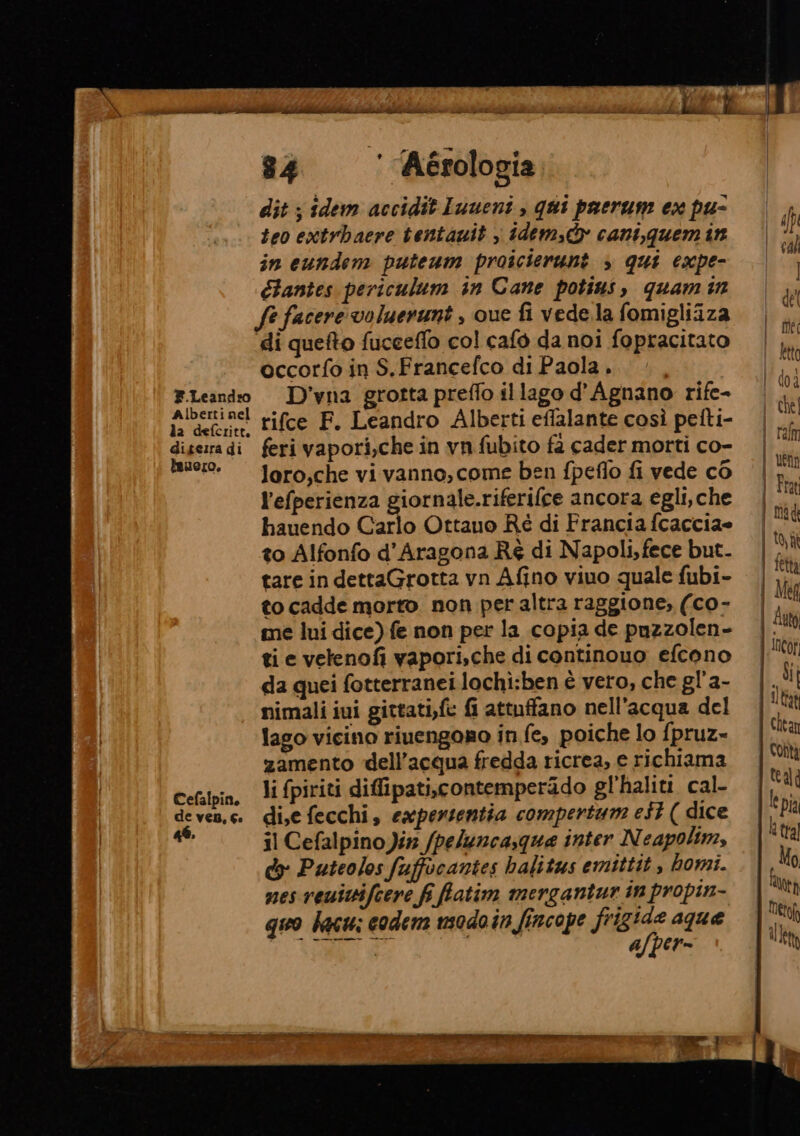 84 Aërologia
dit ; idem accidit Iuueni , qui puerum ex pu-
teo extrhaere tentauit , idem,& cani,quem in
in eundem puteum proicierunt , qui expe-
ctantes periculum in Cane potius, quam in
ſe facere voluerunt , oue ſi vede la ſomigliãza
di queſto ſucceſſo col caſo da noi ſopracitato
occorſo in S. Franceſco di Paola .
D'vna grotta preſſo il lago d'Agnano rife-
riſce F. Leandro Alberti eſſalante così peſti-
feri vapori,che in vn ſubito fa cader morti co-
loro,che vi vanno, come ben ſpeſſo ſi vede cõ
l'eſperienza giornale.riferiſce ancora egli, che
hauendo Carlo Ottauo Rè di Francia ſcaccia-
to Alfonſo d'Aragona Rè di Napoli, fece but-
tare in dettaGrotta vn Aſino viuo quale ſubi-
to cadde morto non per altra raggione, (co-
me lui dice) ſe non per la copia de puzzolen-
ti e velenoſi vapori,che di continouo eſcono
da quei ſotterranei lochi:ben è vero, che gl'a-
nimali iui gittati,ſe ſi attuffano nell'acqua del
lago vicino riuengono in ſe, poiche lo ſpruz-
zamento dell'acqua fredda ricrea, e richiama
li ſpiriti diſſipati,contemperãdo gl'haliti cal-
di,e ſecchi , experientia compertum eſt ( dice
il Ceſalpino)in ſpelunca,quæ inter Neapolim,
& Puteolos ſuffocantes halitus emittit , homi-
nes reuiuiſcere ſi ſtatim mergantur in propin-
quo lacu; eodem modo in ſincope frigidæ aquæ
aſper-
F.Leandro
Alberti nel
la deſcritt.
di terra di
lauoro.
Ceſalpin.
de ven. c.
46.